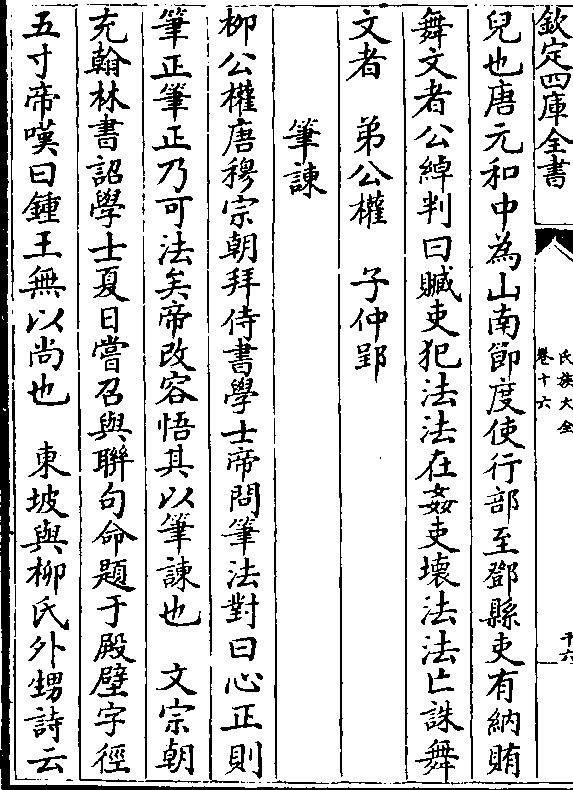 欽定四庫全書
氏族大全
卷十六
十六
兒也唐元和中為山南節度使行部至鄧縣吏有納賄
舞文者公綽判曰贓吏犯法法在姦吏壊法法亡誅舞
文者　弟公權　子仲郢
筆諫
柳公權唐穆宗朝拜侍書學士帝問筆法對曰心正則
筆正筆正乃可法矣帝改容悟其以筆諫也　文宗朝
充翰林書詔學士夏日嘗召與聯句命題于殿壁字徑
五寸帝嘆曰鍾王無以尚也　東坡與柳氏外甥詩云